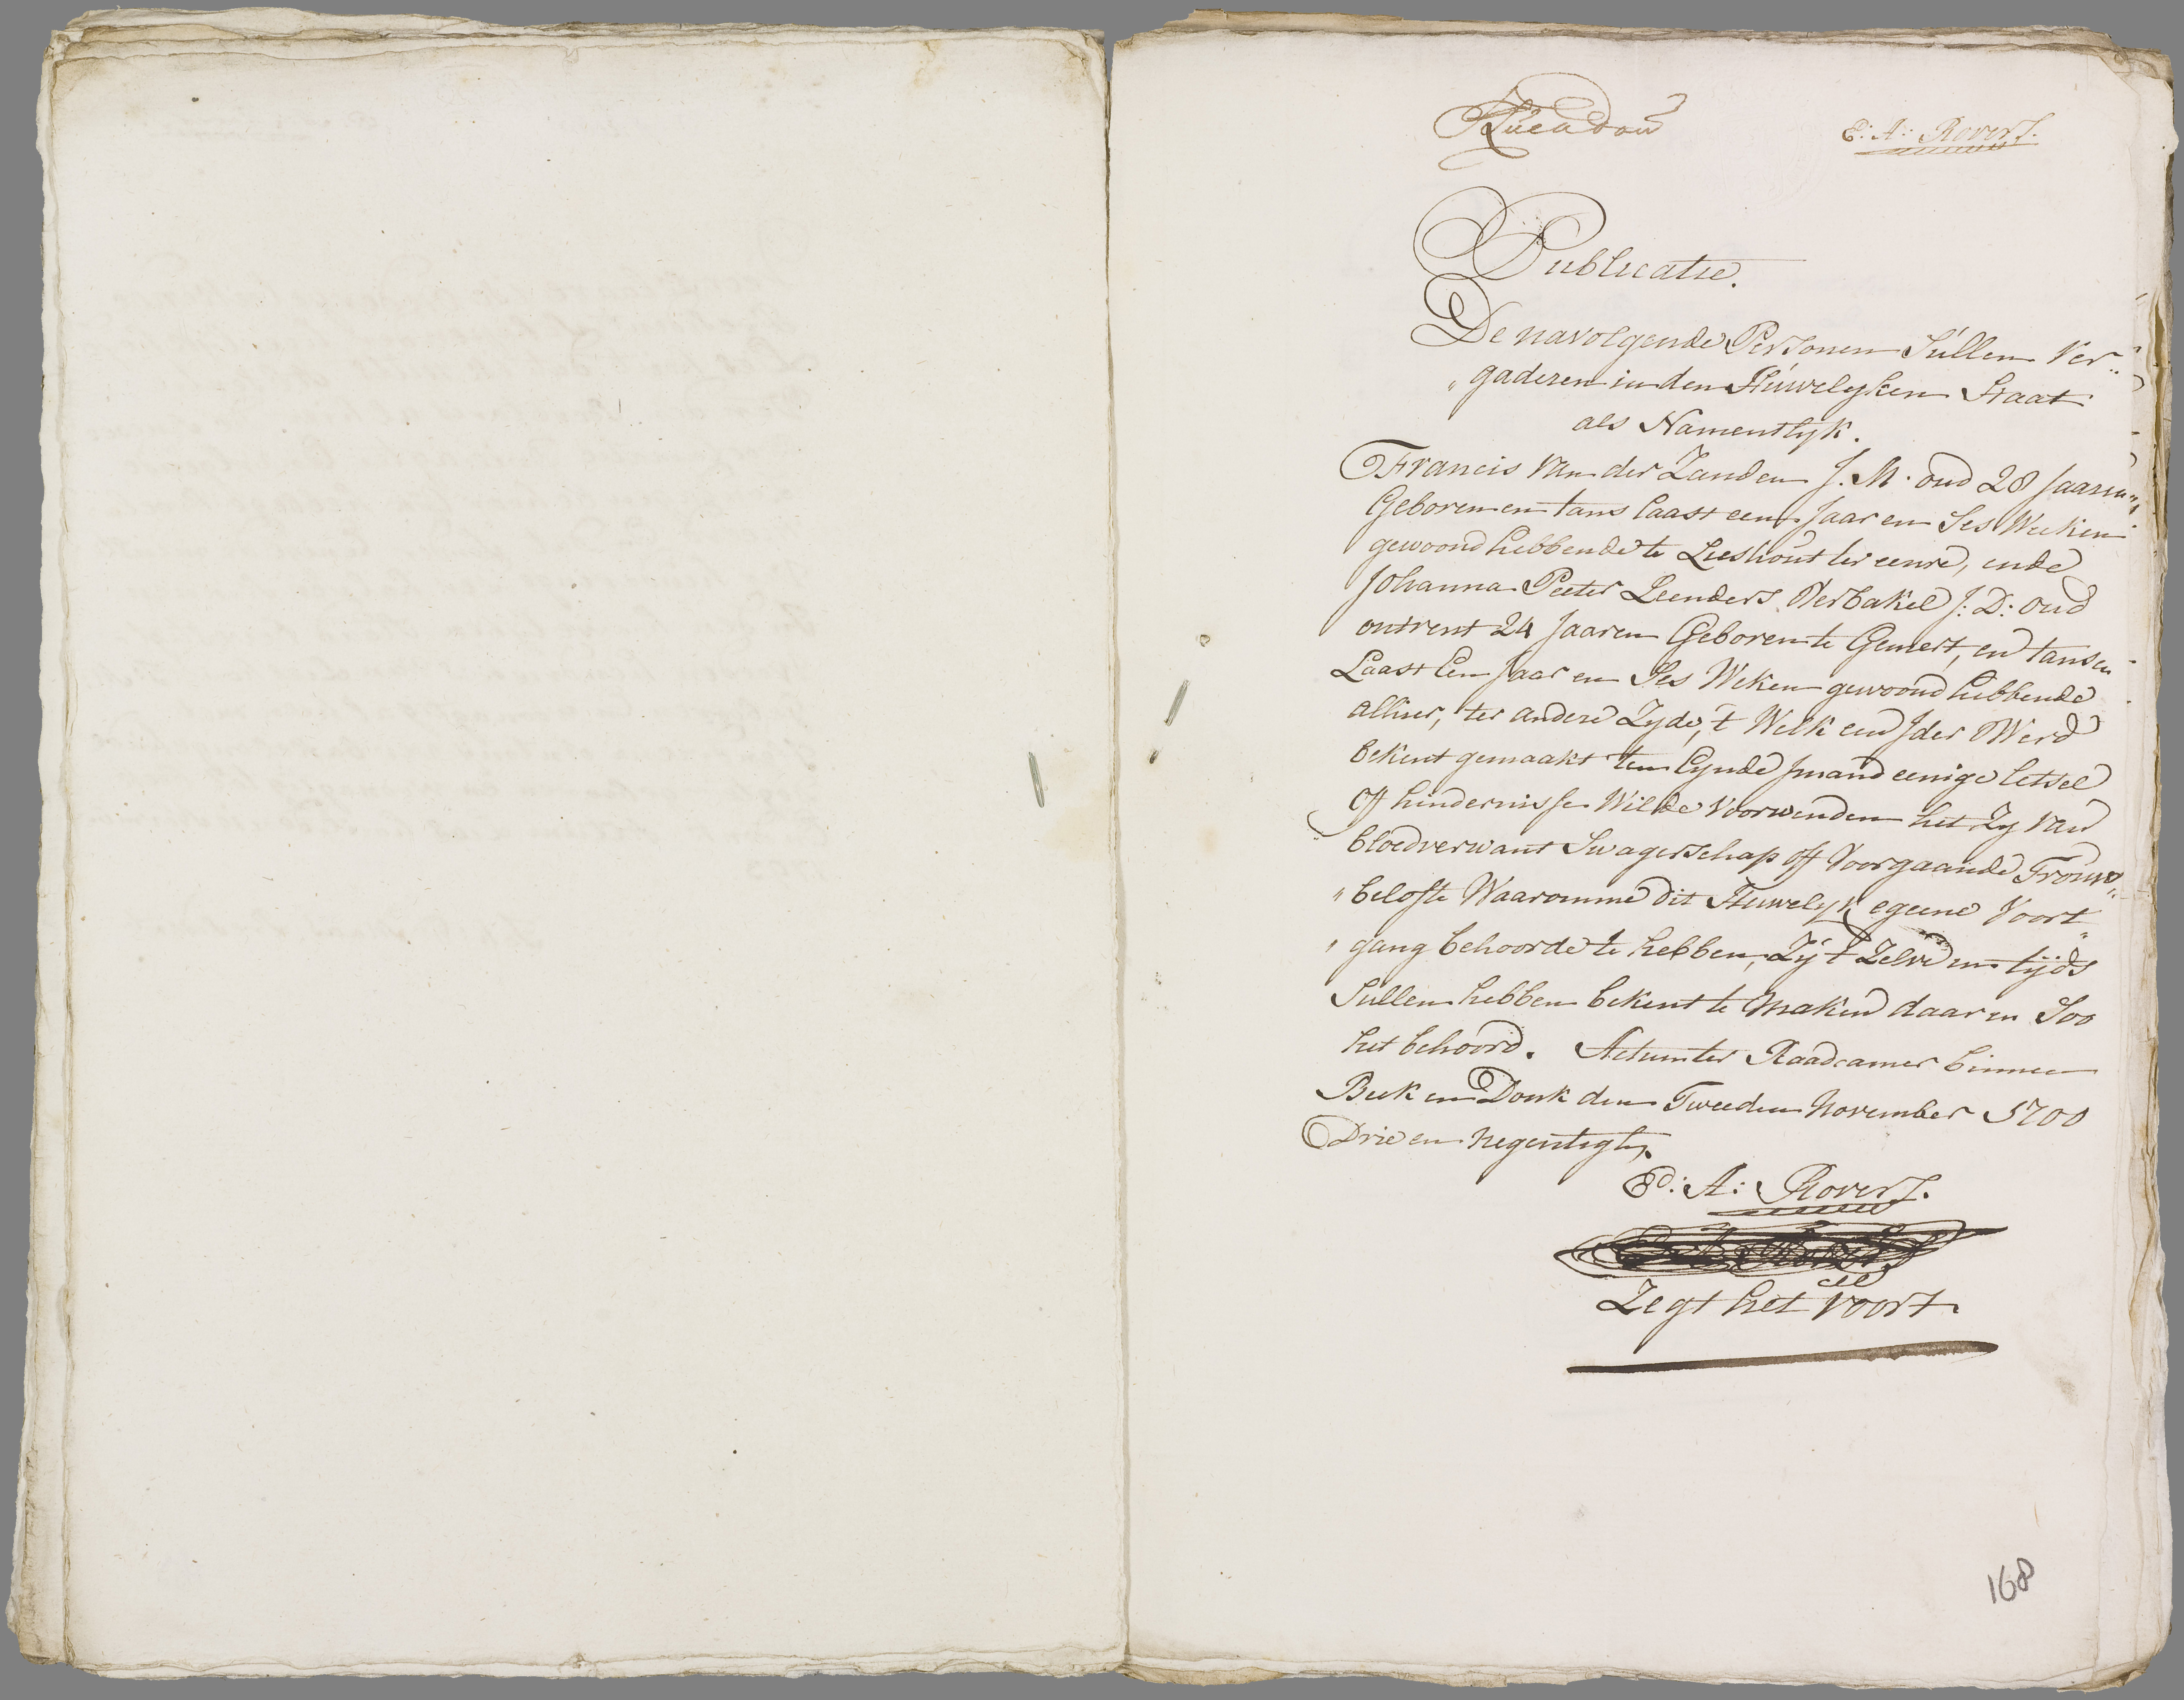 E: A: Rovers.
Publicatie.
De navolgende Persoonen Sullen Ver„
„gaderen in den Huwelyken Staat
als Namentlyk.
Francis van der Zanden J. M. oud 28 Jaaren,
Geboren en tans laast een Jaar en Ses Weeken
gewoond hebbende te Lieshout ter eenre, ende
Johanna Peeter Leenders Verbakel J: D: oud
ontrent 24 Jaaren Geboren te Gemert, en tans en
Laast Een Jaar en Ses Weken gewoond hebbende
alhier, ter andere Zyde, 't Welk een Jder Werd
bekent gemaakt ten Eynde Jmand eenige letsel
off hindernisse Wilde Voorwenden het Zy van
bloedverwant Swagerschap off Voorgaande Trouw„
„belofte Waaromme dit Huwelyk egeene Voort„
„gang behoorde te hebben, Zy 't Zelve in tijds
Sullen hebben bekent te Maken daar en Soo
het behoord. Actum ter Raadcamer binnen
Beek en Donk den Tweeden November 1700
Drie en negentigh.
Ed: A: Rovers.
Zegt het voort
168